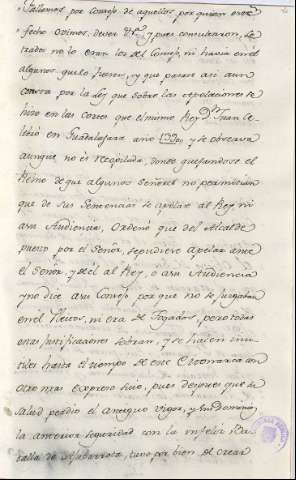 fallamos por consejo de aquellos por quien este
fecho ovimos de ver &c. y pues consultaron, Le-
trados no lo eran los del Consejo, ni havia en él
algunos que lo fuesen, y que parece assi aun
consta por la Ley que sobre las apelaciones se
hizo en las cortes que el mismo Rey Dn. Juan ce-
lebró en Guadalajara año 1390, y se observa
aunque no es recopilada, donde quejandose el
Reino de que algunos señores no permitian
que de sus sentencias se apelase al Rey ni
a su Audiencia, Ordenó que del Alcalde
puesto por el Señor, se pudiere apelar ante
el Señor, y de él al Rey, o a su Audiencia
y no dice a su Consejo por que no se juzgaban
en él Pleitos, ni era de Togados, pero todas
estas justificaciones sobran, y se hacen inu-
tiles hasta el tiempo de este Monarca con
otro mas expreso suio, pues despues que su
salud perdió el antiguo vigor, y su Dominio,
la anterior seguridad con la infeliz Ba-
talla de Aljubarrota, tuvo por bien de crear